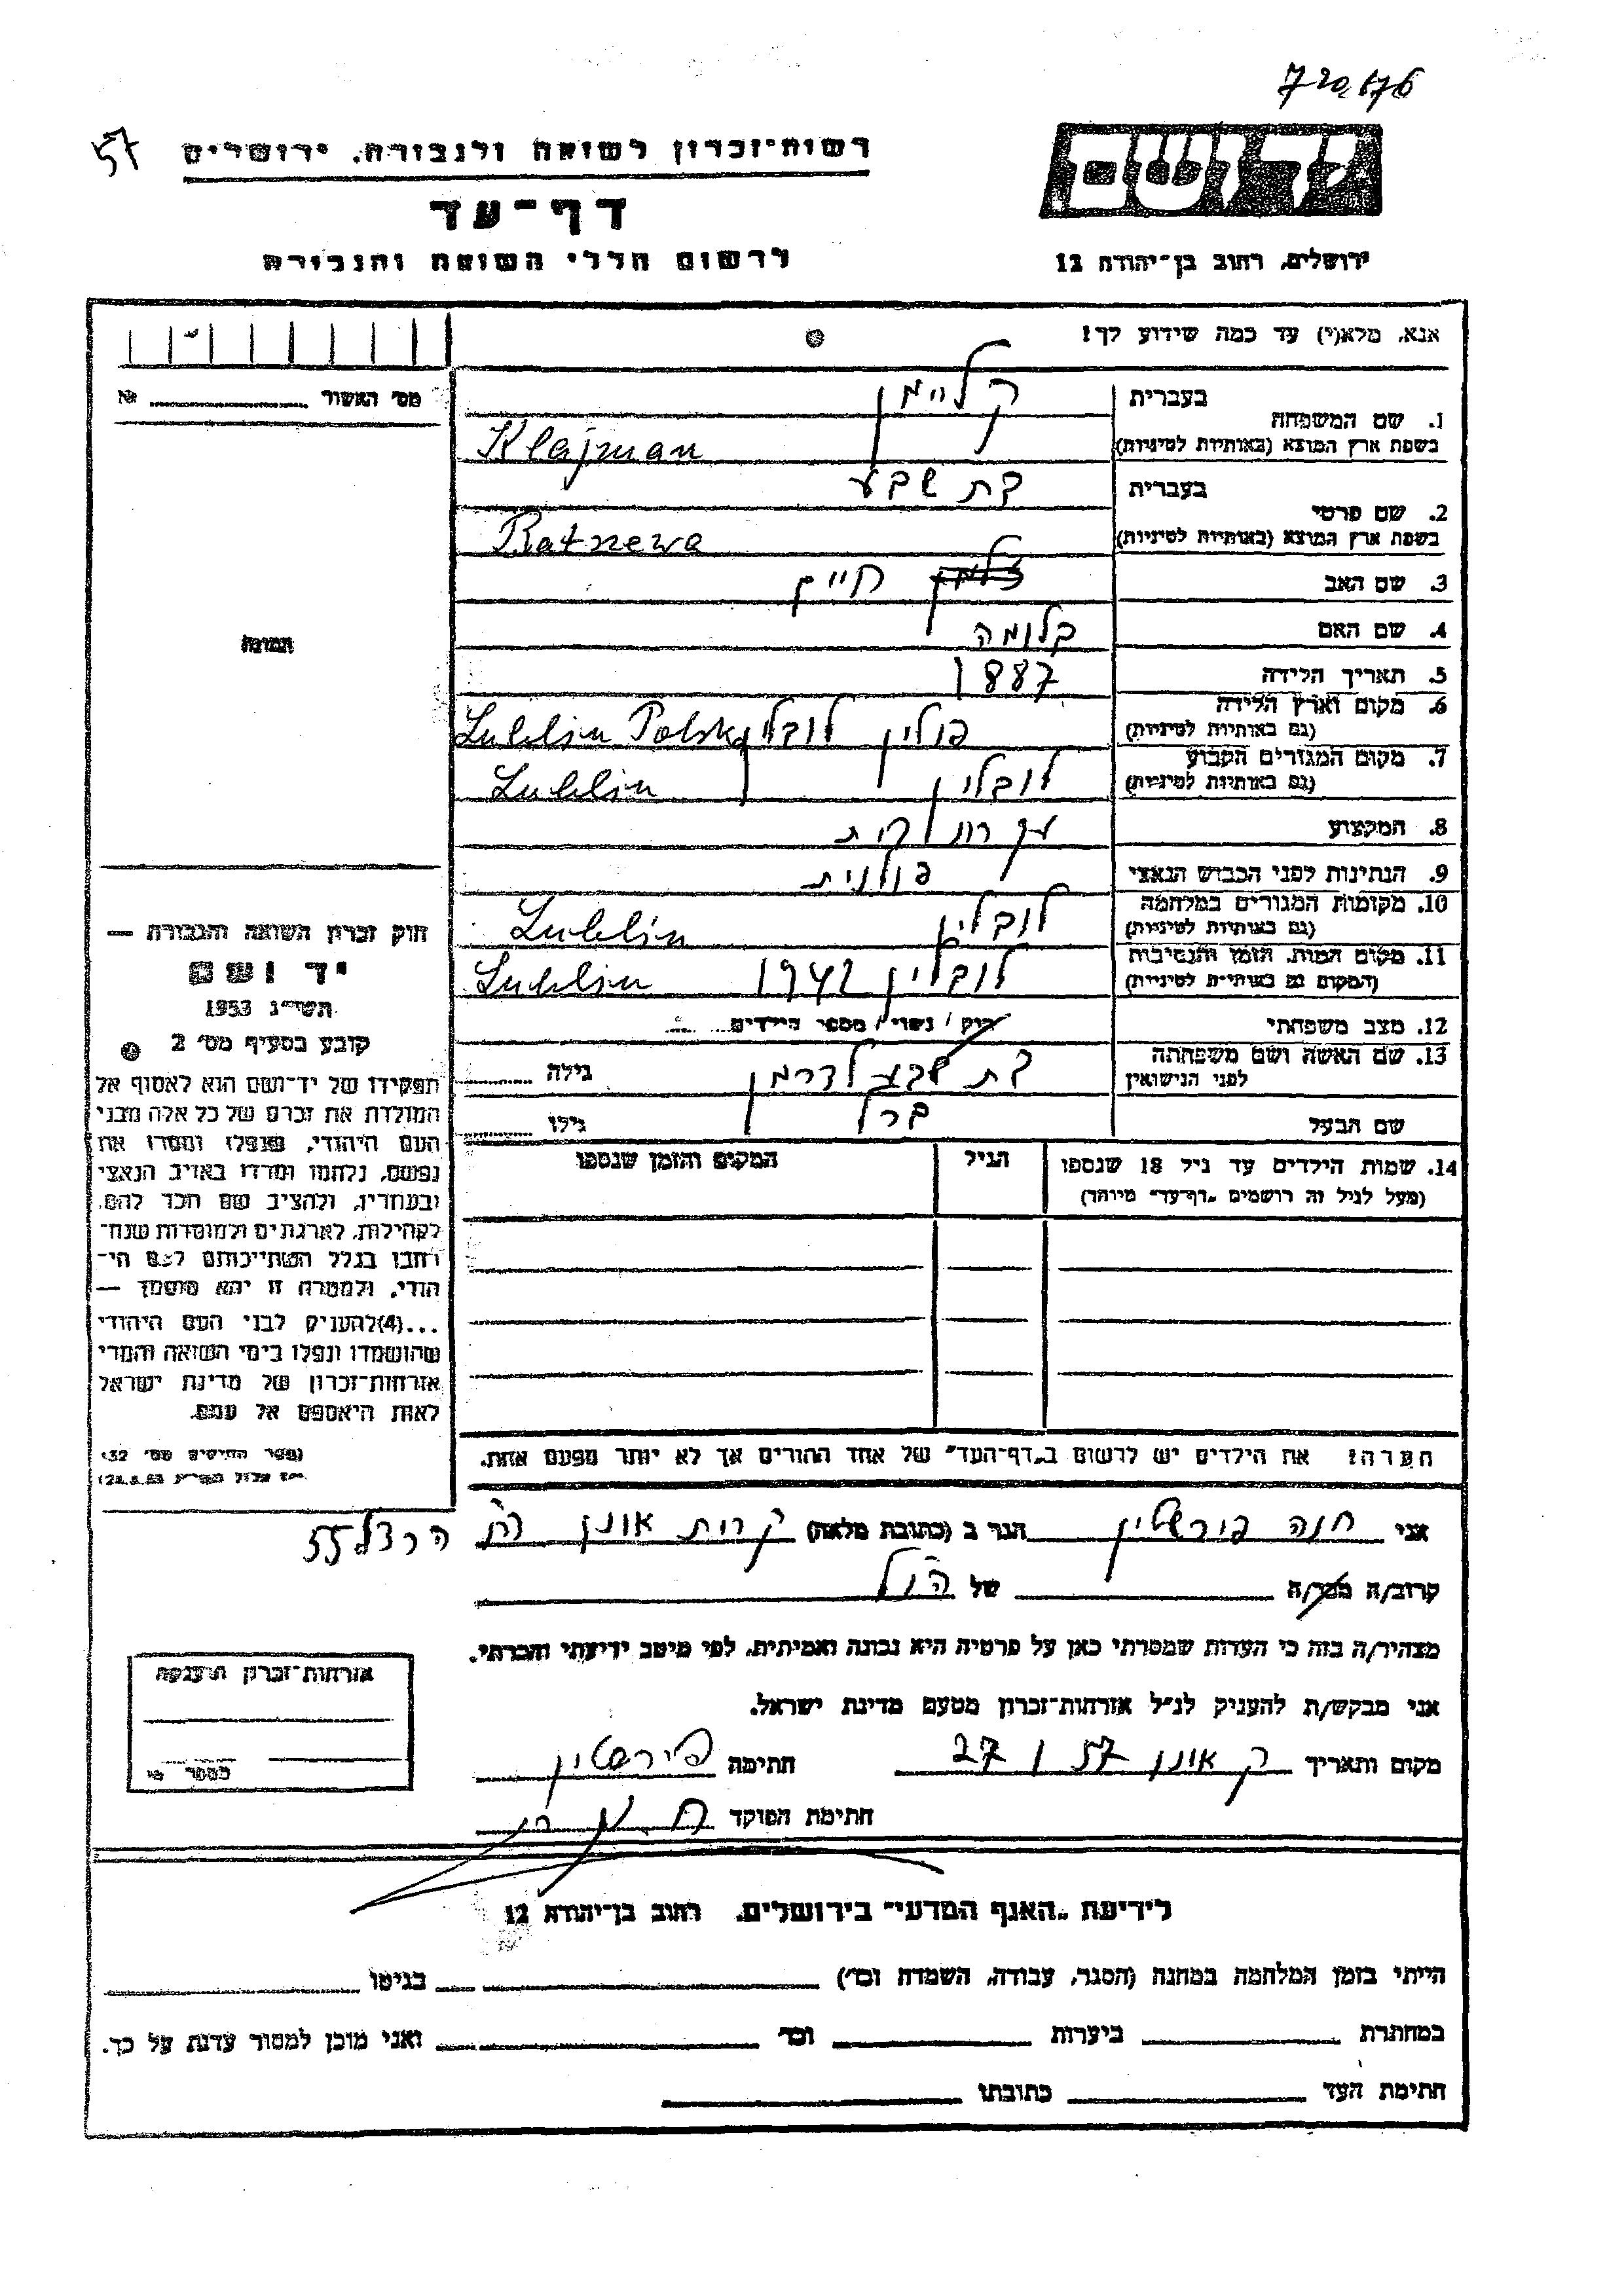 720,676
57
רשות־זכרון לשואה ולגבורה, ירושלים
דף־עד
לרשום חללי השואה והגבורה
יד ושם
ירושלים, רחוב בן־יהודה 12
אנא, מלא(י) עד כמה שידוע לך!
מס׳ האשור № 
1. שם המשפחה בעברית קליימן
בשפת ארץ המוצא (באותיות לטיניות) Klajman
2. שם פרטי בעברית בת שבע
בשפת ארץ המוצא (באותיות לטיניות)
3. שם האב חיים
4. שם האם
5. תאריך הלידה 1887
6. מקום וארץ הלידה (גם באותיות לטיניות) פולין לובלין Lublin Polska
7. מקום המגורים הקבוע (גם באותיות לטיניות) לובלין Lublin
8. המקצוע
9. הנתינות לפני הכבוש הנאצי פולנית
10. מקומות המגורים במלחמה (גם באותיות לטיניות) לובלין Lublin
11. מקום המות, הזמן והנסיבות (המקום גם באותיות לטיניות) לובלין 1942 Lublin
12. מצב משפחתי רוק / נשוי / מספר הילדים
13. שם האשה ושם משפחתה לפני הנישואין בת שבע לדרמן גילה
שם הבעל ברל גילו
14. שמות הילדים עד גיל 18 שנספו הגיל המקום והזמן שנספו
(מעל לגיל זה רושמים „דף־עד״ מיוחד)
הערה: את הילדים יש לרשום ב„דף־העד״ של אחד ההורים אך לא יותר מפעם אחת.
התמונה
חוק זכרון השואה והגבורה —
יד ושם
תשי״ג 1953
קובע בסעיף מס׳ 2
תפקידו של יד־ושם הוא לאסוף אל
המולדת את זכרם של כל אלה מבני
העם היהודי, שנפלו ומסרו את
נפשם, נלחמו ומרדו באויב הנאצי
ובעוזריו, ולהציב שם וזכר להם,
לקהילות, לארגונים ולמוסדות שנח־
רבו בגלל השתייכותם לעם הי־
הודי, ולמטרה זו יהא מוסמך —
...(4) להעניק לבני העם היהודי
שהושמדו ונפלו בימי השואה והמרי
אזרחות־זכרון של מדינת ישראל
לאות היאספם אל עמם.
(ספר החוקים מס׳ 132,
אני חנה פירשטין הגר ב (כתובת מלאה) קרית אונו רח הרצל 55
קרוב/ה מכר/ה של הנ״ל
מצהיר/ה בזה כי העדות שמסרתי כאן על פרטיה היא נכונה ואמיתית, לפי מיטב ידיעתי והכרתי.
אני מבקש/ת להעניק לנ״ל אזרחות־זכרון מטעם מדינת ישראל.
מקום ותאריך ק אונו 57 / 27 חתימה פירשטין
חתימת הפוקד
אזרחות־זכרון הוענקה
לידיעת „האגף המדעי״ בירושלים, רחוב בן־יהודה 12
הייתי בזמן המלחמה במחנה (הסגר, עבודה, השמדה וכד׳) בגיטו
במחתרת ביערות וכד׳ ואני מוכן למסור עדות על כך.
חתימת העד כתובתו